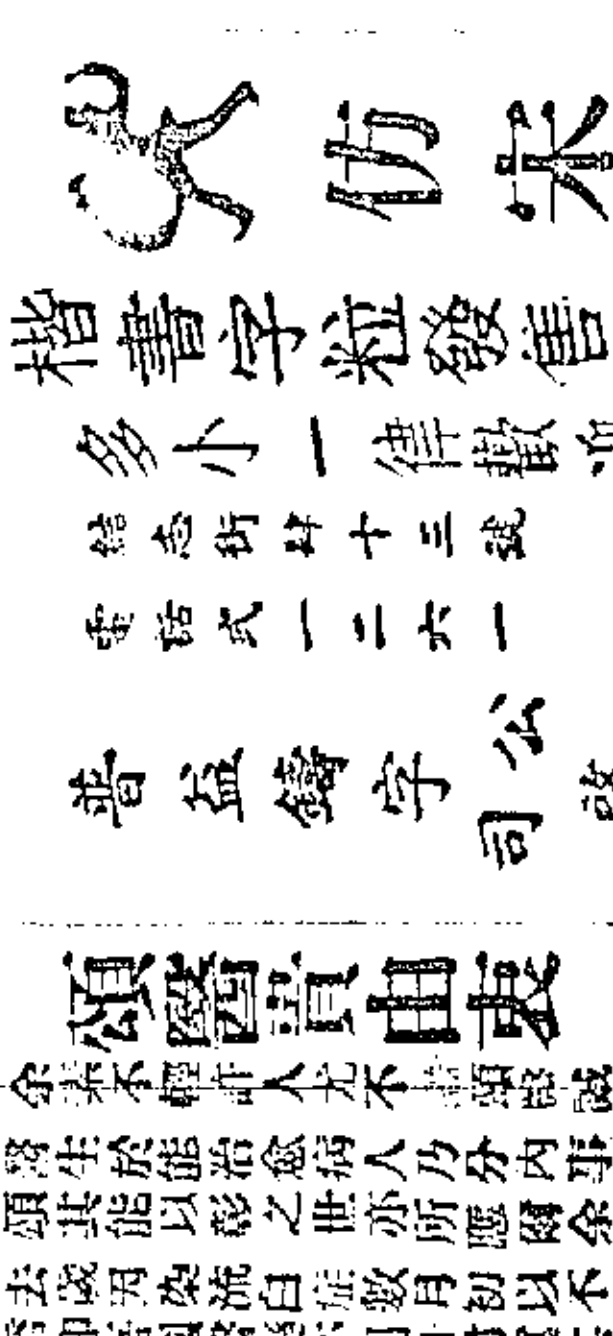 仿宋
楷書字粒發售
多小一律歡
結志街十三號
電話式一二六一
普益鑄字公司
頌醫贊由衷
余素不輕許人尤不頌誠
醫生於能治愈病人乃分內事
頌其能以彰之世亦所應爾余
去歲因染流白症數月初以不